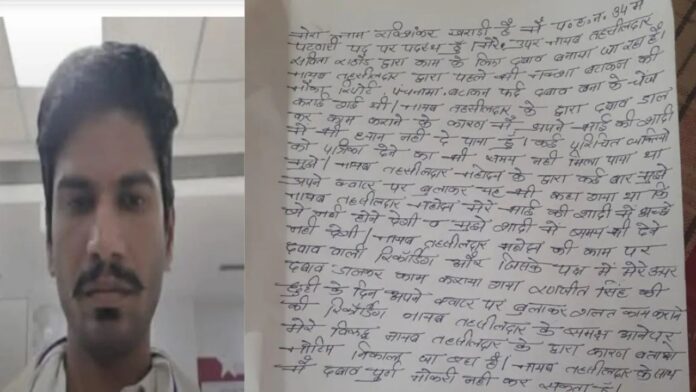 मेरा नाम रविशंकर खराडी है मैं प.ह.न. 34 में
पटवारी पद पर पदस्थ हूँ। मेरे उपर नायब तहसीलदार
राठौड द्वारा काम के लिए दबाव बनाया जा रहा है।
नायब तहसीलदार द्वारा पहले भी नक्शा बटाकन की
मौका रिपोर्ट, पंचनामा, बटाकन फर्द दबाव बना के चेंज
कराई गई थी। नायब तहसीलदार के द्वारा दबाव डाल
कर काम कराने के कारण मैं अपने भाई की शादी
में भी ध्यान नहीं दे पाया हूँ। कई परिचित व्यक्तियों
को पत्रिका देने का भी समय नहीं मिल पाया था
मुझे। नायब तहसीलदार महोदय के द्वारा कई बार मुझे
अपने क्वाटर पर बुलाकर यह भी कहा गया था कि
नायब तहसीलदार महोदय मेरे भाई की शादी में अच्छे
से नहीं होने देगी व मुझे शादी में समय भी देने
नहीं देगी। नायब तहसीलदार महोदय की काम पर
दबाव वाली रिकॉर्डिंग और जिसके पक्ष में मेरे उपर
दबाव डालकर काम कराया गया रणजीत सिंह की
छुट्टी के दिन अपने क्वाटर पर बुलाकर गलत काम कराने
की रिकॉर्डिंग नायब तहसीलदार के समक्ष आने पर
मेरे विरूद्ध नायब तहसीलदार के द्वारा कारण बताओ
नोटिस निकाला जा रहा है। नायब तहसीलदार के साथ
मैं दबाव पूर्ण नौकरी नहीं कर सकता हूँ